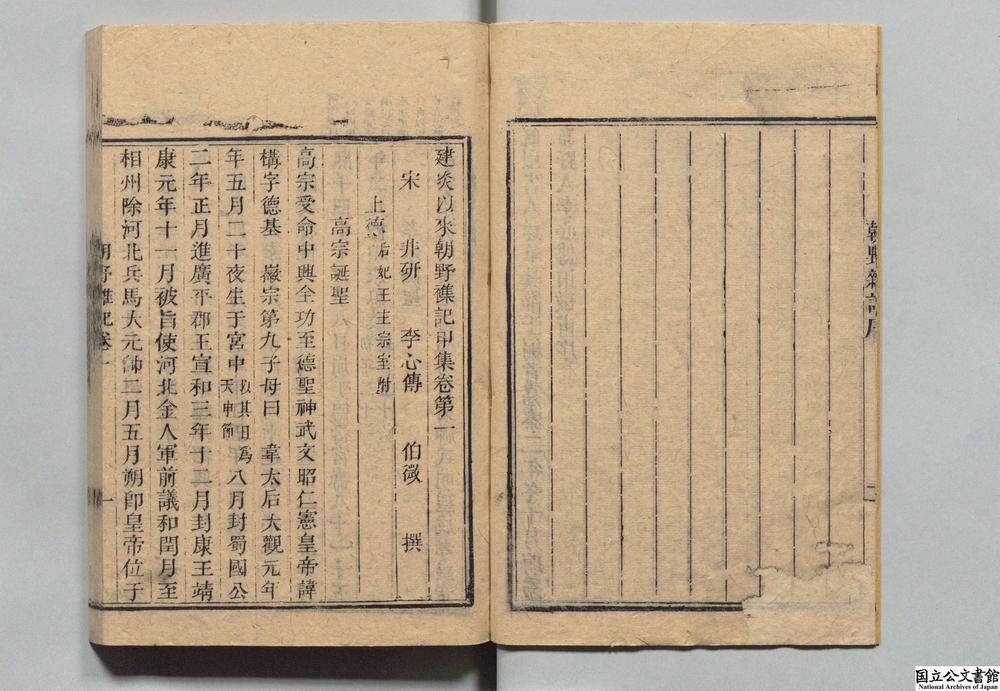 朝野雜記序
建炎以來朝野雜記甲集卷第一
宋　井研　李心傳　伯微　撰
上德一后妃王主宗室附
高宗誕聖
高宗受命中興全功至德聖神武文昭仁憲皇帝諱
構字德基　徽宗第九子母曰　韋太后大觀元年
年五月二十夜生于宮中以其日爲天申節八月封蜀國公
二年正月進廣平郡王宣和三年十二月封康王靖
康元年十一月被旨使河北金人軍前議和閏月至
相州除河北兵馬大元帥二年五月朔即皇帝位于
朝野雜記卷一
一
国立公文書館
National Archives of Japan